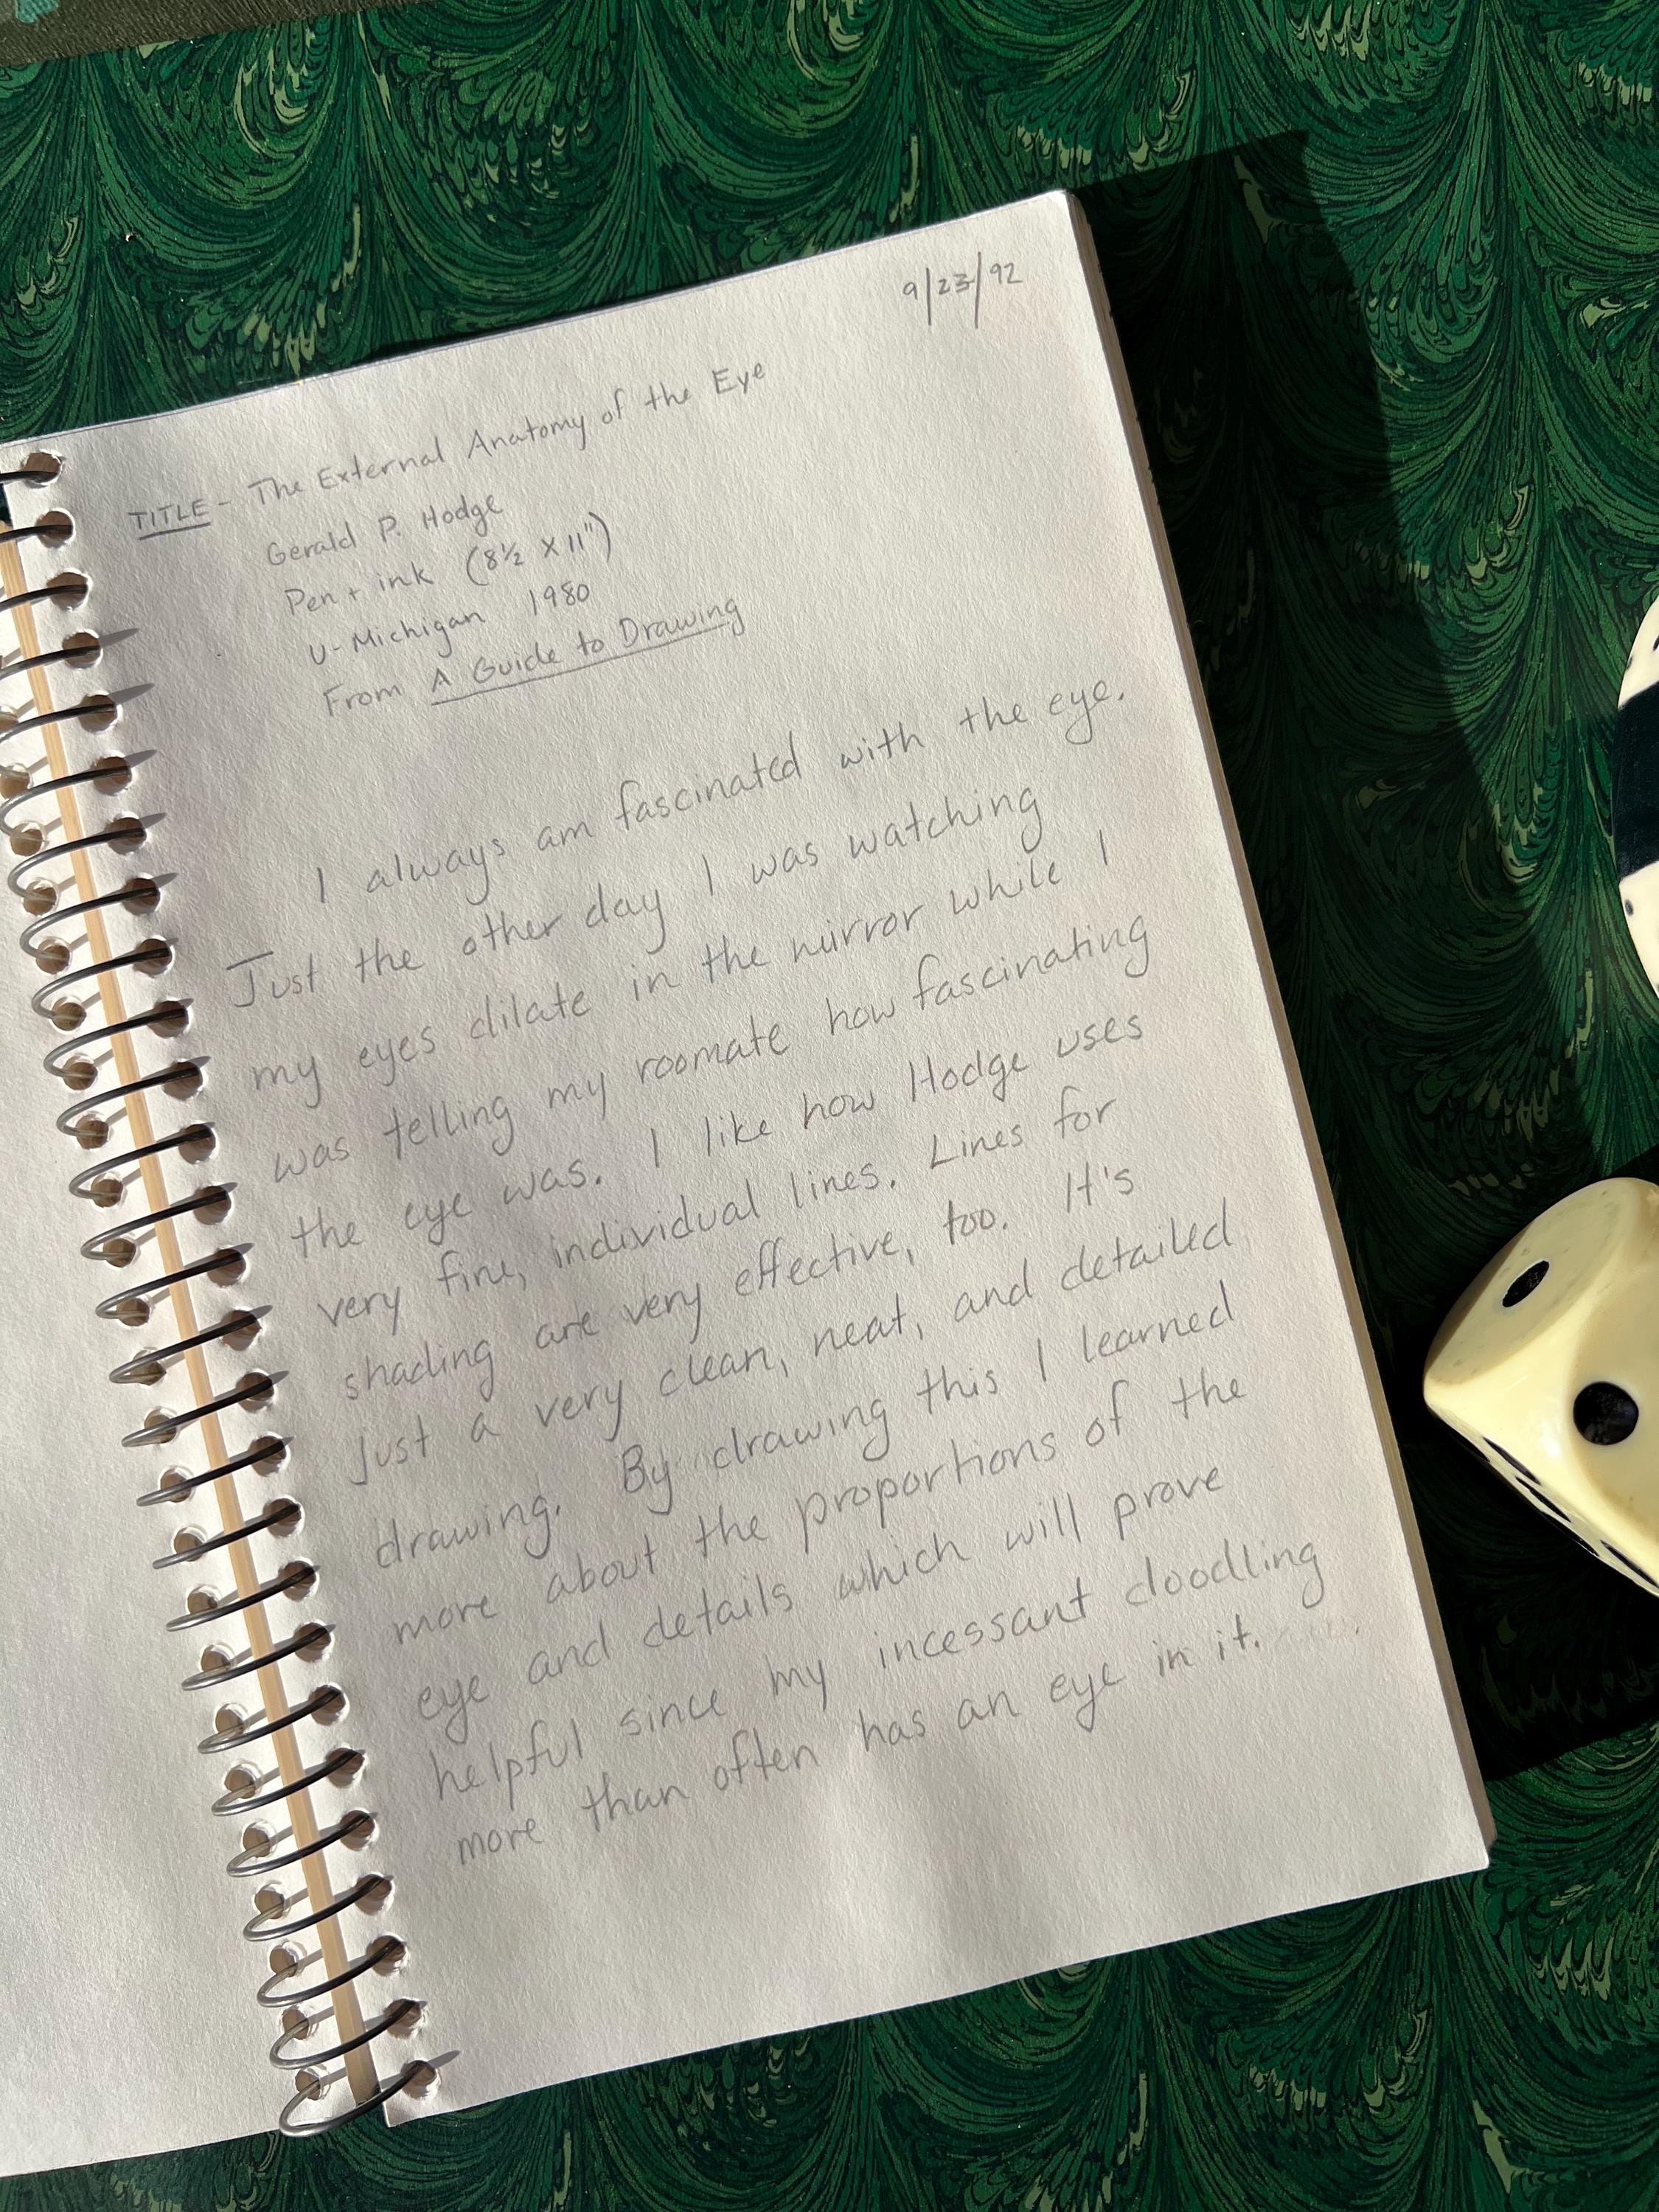 9/23/92
TITLE - The External Anatomy of the Eye
Gerald P. Hodge
Pen + ink (8½ x 11")
U-Michigan 1980
From A Guide to Drawing
I always am fascinated with the eye.
Just the other day I was watching
my eyes dilate in the mirror while I
was telling my roomate how fascinating
the eye was. I like how Hodge uses
very fine, individual lines. Lines for
shading are very effective, too. It's
just a very clean, neat, and detailed
drawing. By drawing this I learned
more about the proportions of the
eye and details which will prove
helpful since my incessant doodling
more than often has an eye in it.